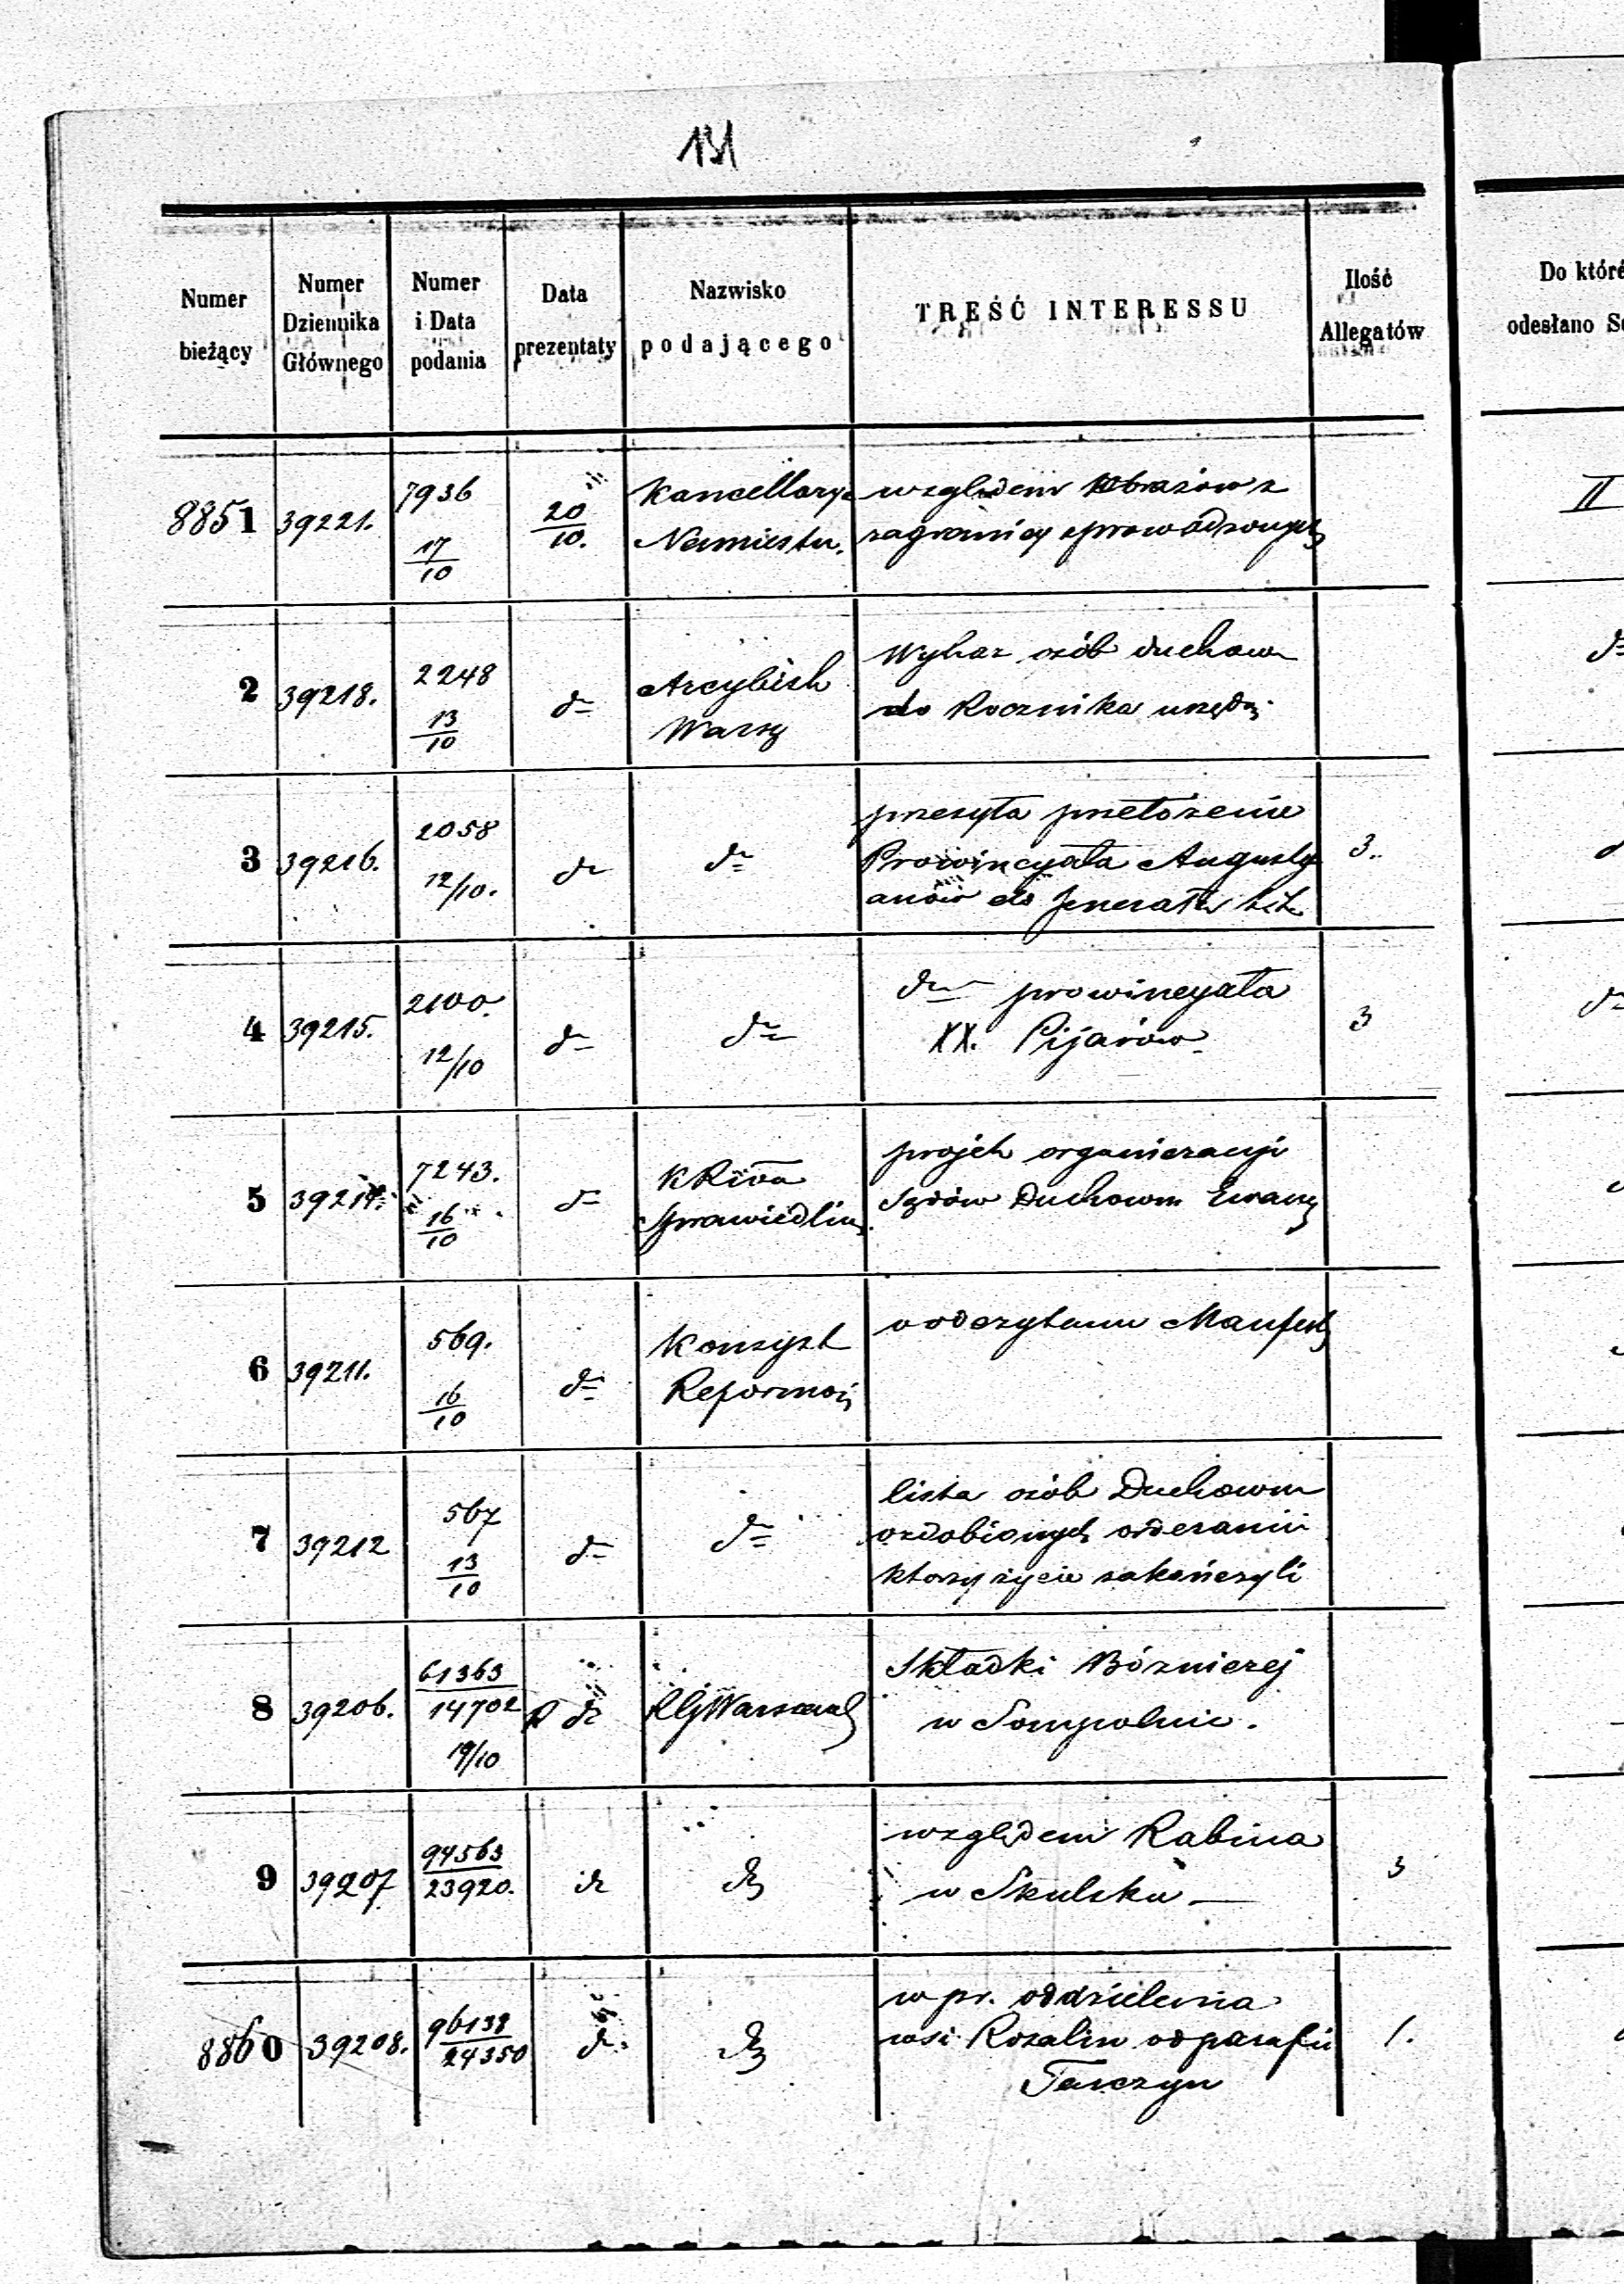 131
Numer bieżący
Numer Dziennika Głównego
Numer i Data podania
Data prezentaty
Nazwisko podającego
TREŚĆ INTERESSU
Ilość Allegatów
Do któré
odesłano S
8851 39221. 7936 17/10 20/10. Kancellarya Namiestn. względem Obrazów z
zagranicy sprowadzonych
II
2 39218. 2248 13/10 dto Arcybisk Warsz Wykaz osób duchown
do Rocznika urzędo
3 39216. 2058 12/10. dto dto przesyła przełożenie
Prowincyała Augusty
anów do Jenerała 3..
4 39215. 2100. 12/10 dto dto dto prowincyała
XX. Pijarów 3
5 7243. 16/10 dto KRząa Sprawiedliw projek organizacyi
Sądów Duchown Ewang
6 39211. 569. 16/10 dto Konsyst Reformow o odczytaniu Manifest
7 39212 567 13/10 dto dto lista osób Duchown
ozdobionych orderami
którzy życie zakończyli
8 39206. 61363/14702 19/10 dto RGWarszaws Składki Bóżniczej
w Sompolnie.
9 39207 94563/23920. dto dto względem Rabina
w Skulsku — 3
8860 39208. 96138/24350 dto dto w pr. oddzielenia
wsi Rozalin od parafii
Tarczyn 1.